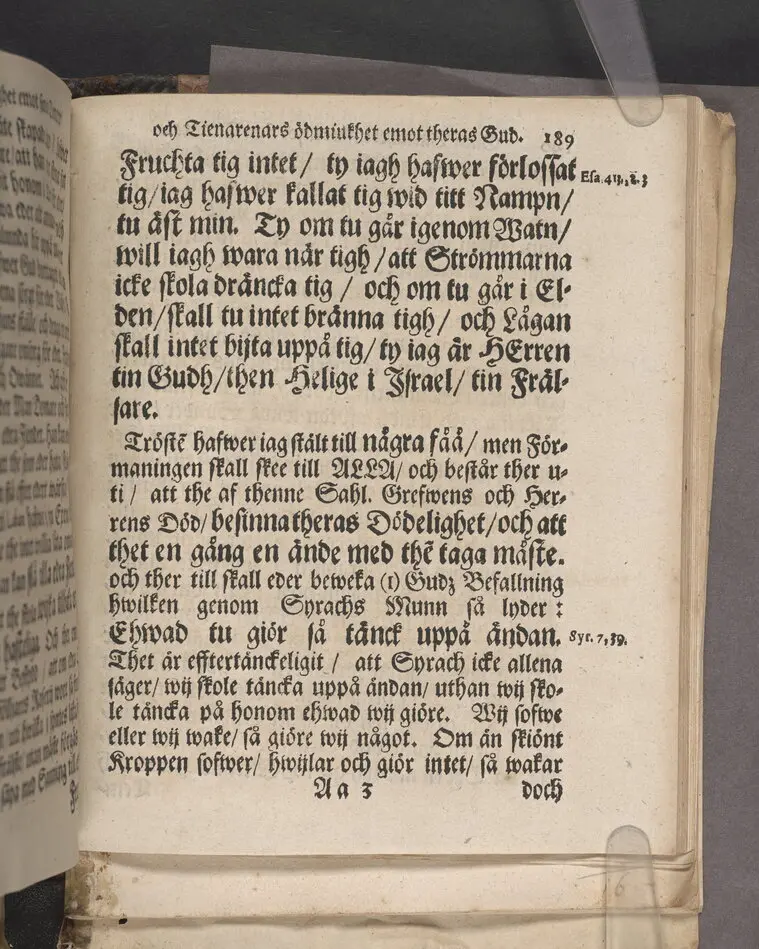 och Tienarenars ödmiukhet emot theras Gud. 189
Fruchta tig intet / ty iagh hafwer förlossat
tig / iag hafwer kallat tig wid titt Nampn /
tu äst min. Ty om tu går igenom Watn /
will iagh wara när tigh / att Strömmarna
icke skola dräncka tig / och om tu går i El-
den / skall tu intet bränna tigh / och Lågan
skall intet bijta uppå tig / ty iag är HErren
tin Gudh / then Helige i Israel / tin Fräl-
sare.
Tröstē hafwer iag stält till några fåå / men För-
maningen skall skee till ALLA / och består ther u-
ti / att the af thenne Sahl. Grefwens och Her-
rens Död / besinna theras Dödelighet / och att
thet en gång en ände med thē taga måste.
och ther till skall eder beweka (1) Gudz Befallning
hwilken genom Syrachs Munn så lyder :
Ehwad tu giör så tänck uppå ändan. Syr. 7, 39.
Thet är efftertänckeligit / att Syrach icke allena
säger / wij skole täncka uppå ändan / uthan wij sko-
le täncka på honom ehwad wij giöre. Wij sofwe
eller wij wake / så giöre wij något. Om än skiönt
Kroppen sofwer / hwijlar och giör intet / så wakar
Aa 3 doch